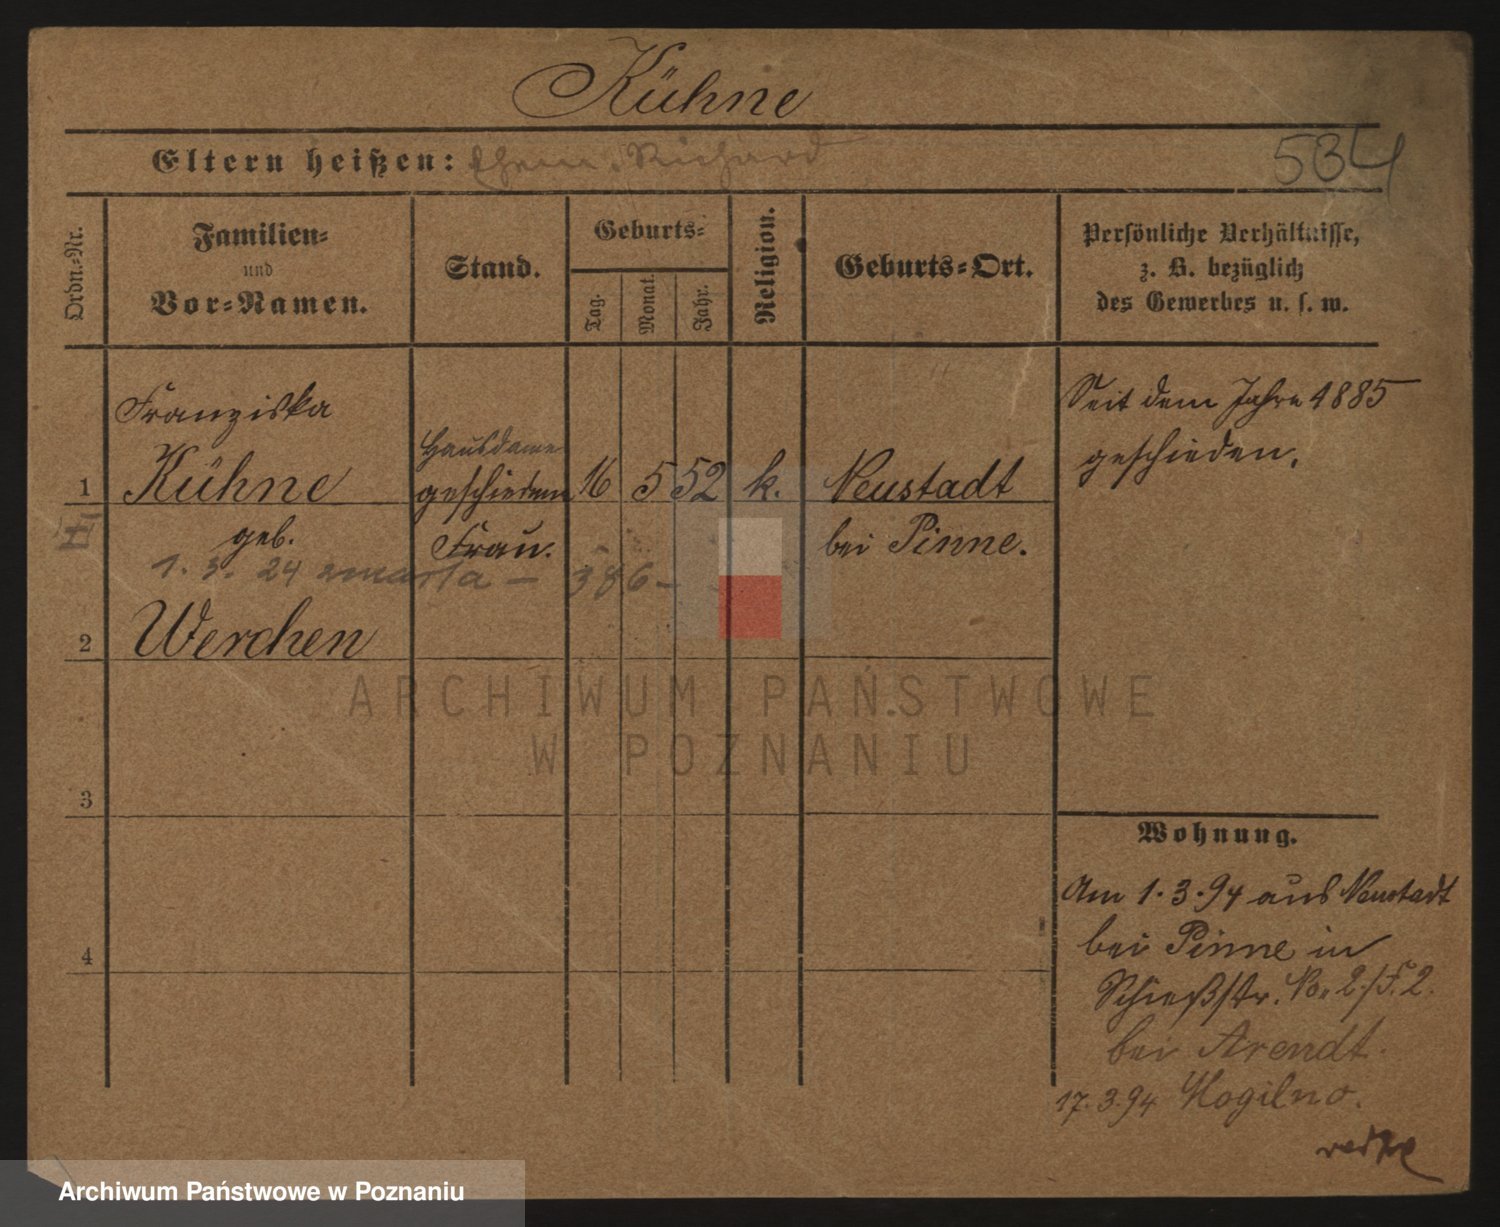 Kühne
Eltern heißen: Ehem. Richard
534
Ordn.-Nr.
Familien-
und
Vor-Namen.
Stand.
Geburts-
Tag.
Monat.
Jahr.
Religion.
Geburts-Ort.
Persönliche Verhältnisse,
z. B. bezüglich
des Gewerbes u. s. w.
Franziska
1 Kühne
geb.
1. 3. 24 zmarła — 386 —
2 Werchen
Hausdame
geschiedene
Frau.
16 5 52 k.
Neustadt
bei Pinne.
Seit dem Jahre 1885
geschieden.
3
4
Wohnung.
Am 1.3.94 aus Neustadt
bei Pinne in
Schießstr. No. 2./F. 2.
bei Arendt.
17.3.94 Mogilno.
ARCHIWUM PAŃSTWOWE
W POZNANIU
Archiwum Państwowe w Poznaniu